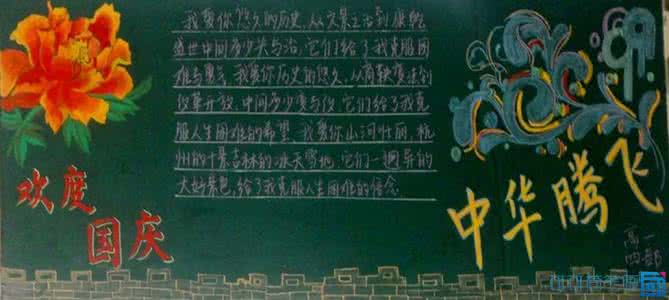 我爱你悠久的历史,从文景之治到康乾
盛世中间多少关与治,它们给了我克服困
难与勇气,我爱你历史的悠久,从商鞅变法到
改革开放,中间多少变与改,它们给了我克
服人生困难的希望,我爱你山河壮丽,杭
州的十景吉林的冰天雪地,它们一趟异的
大好景色,给了我克服人生困难的信念
欢度
国庆
中华腾飞
高一
四部